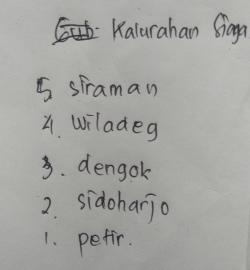 Kalurahan Siaga
5. siraman
4. wiladeg
3. dengok
2. sidoharjo
1. petir.